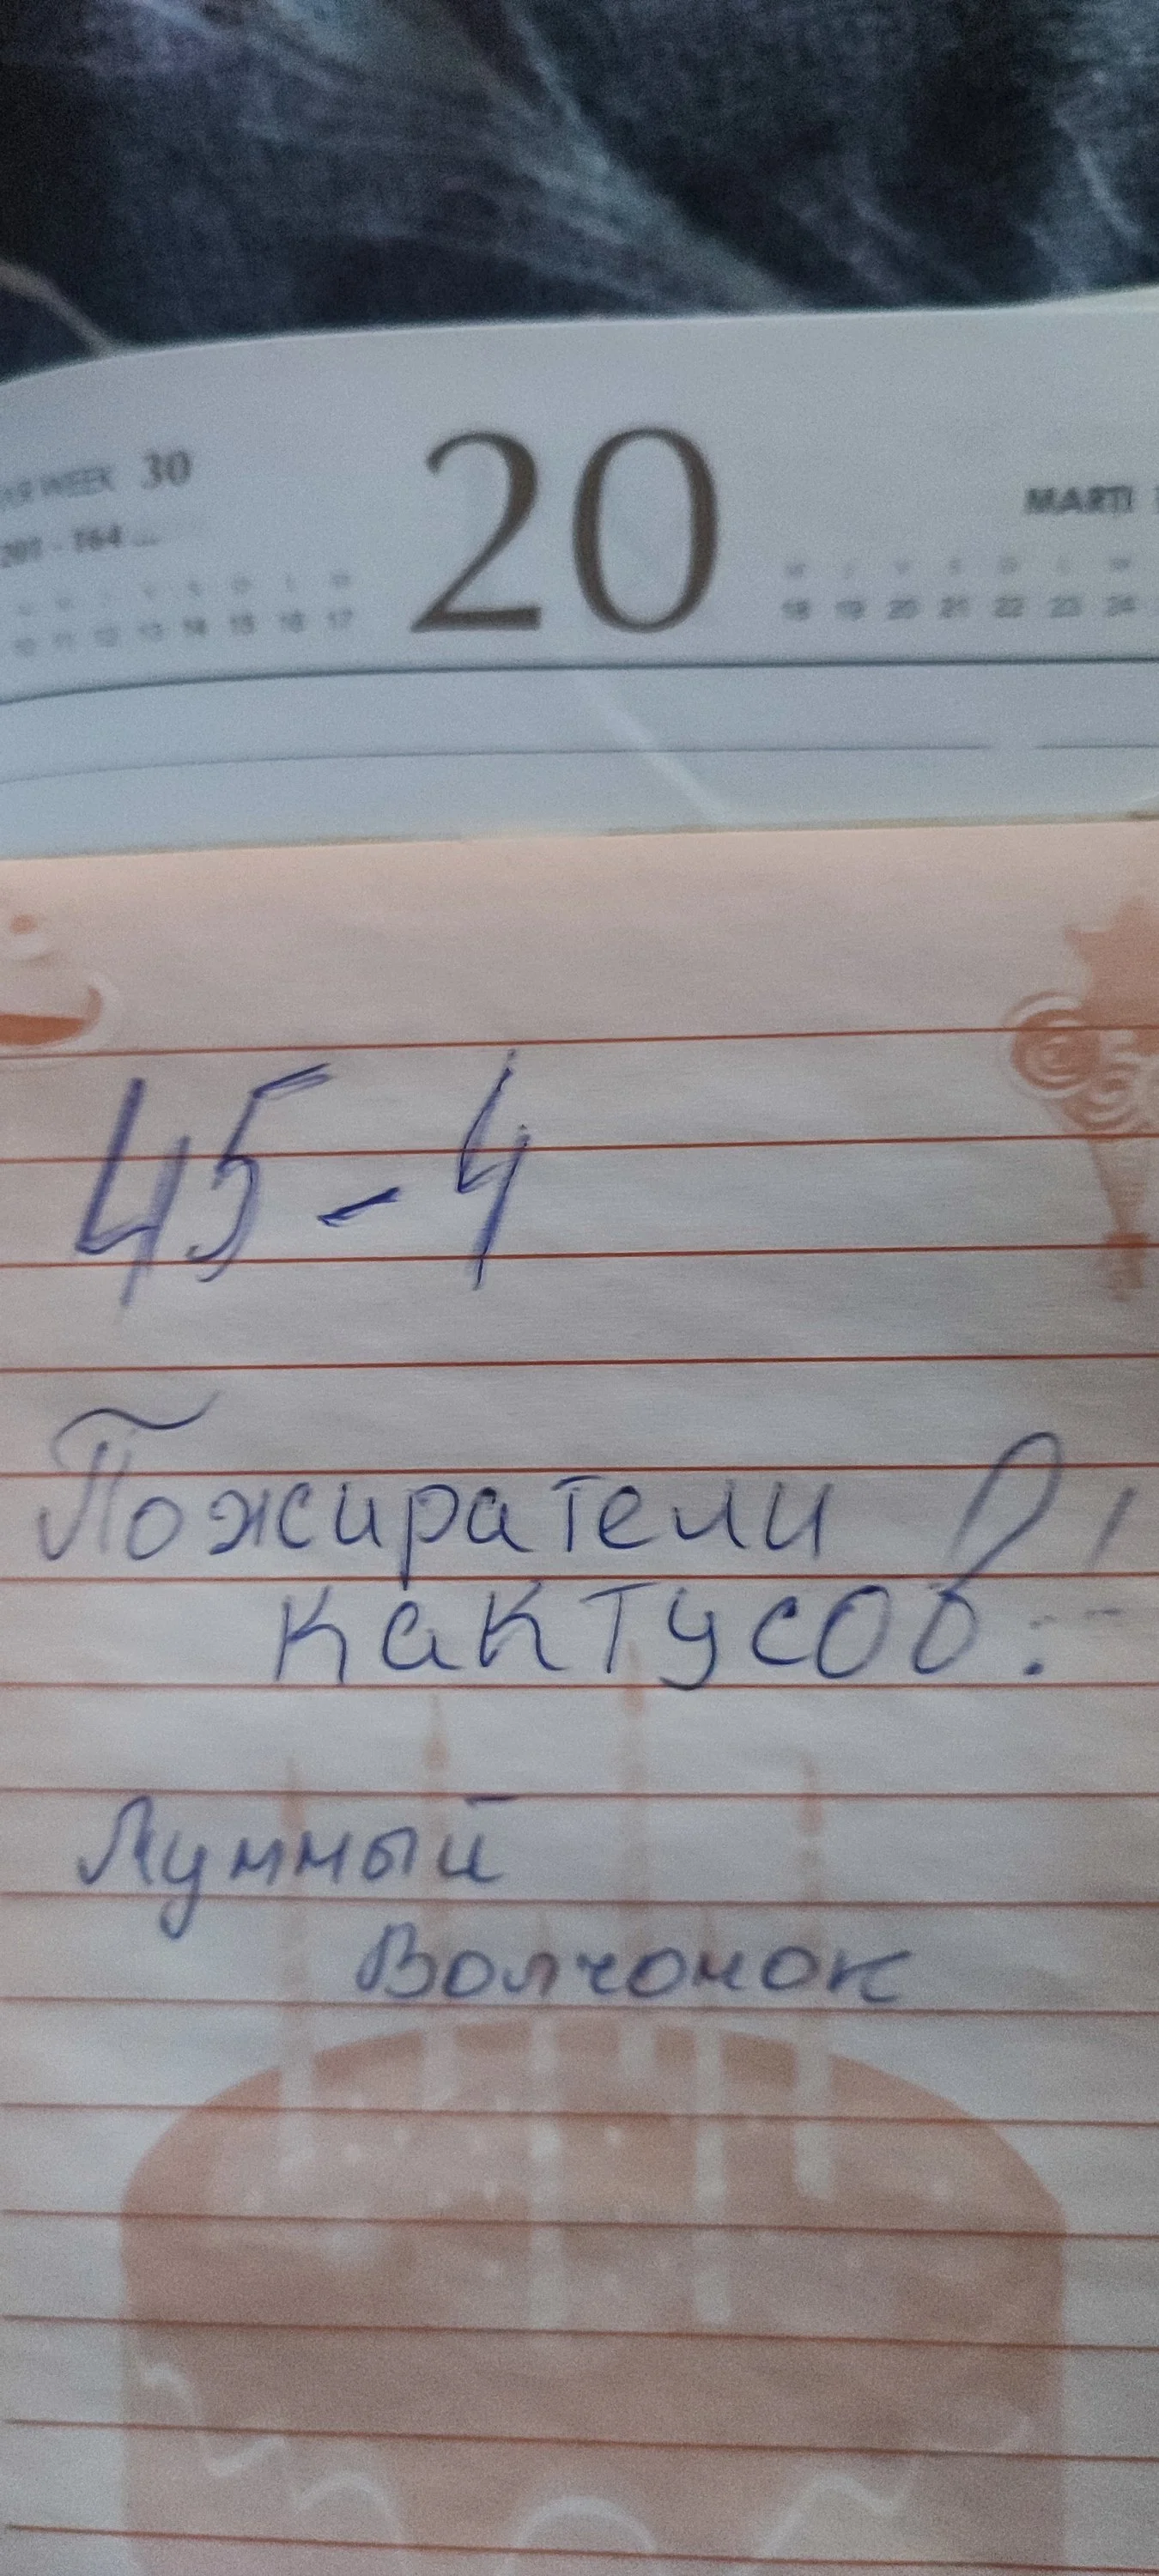 WEEK 30
20
MARTI
201 - 164
10 11 12 13 14 15 16 17
18 19 20 21 22 23 24
45-4
Пожиратели
кактусов!
Лунный
Волчонок